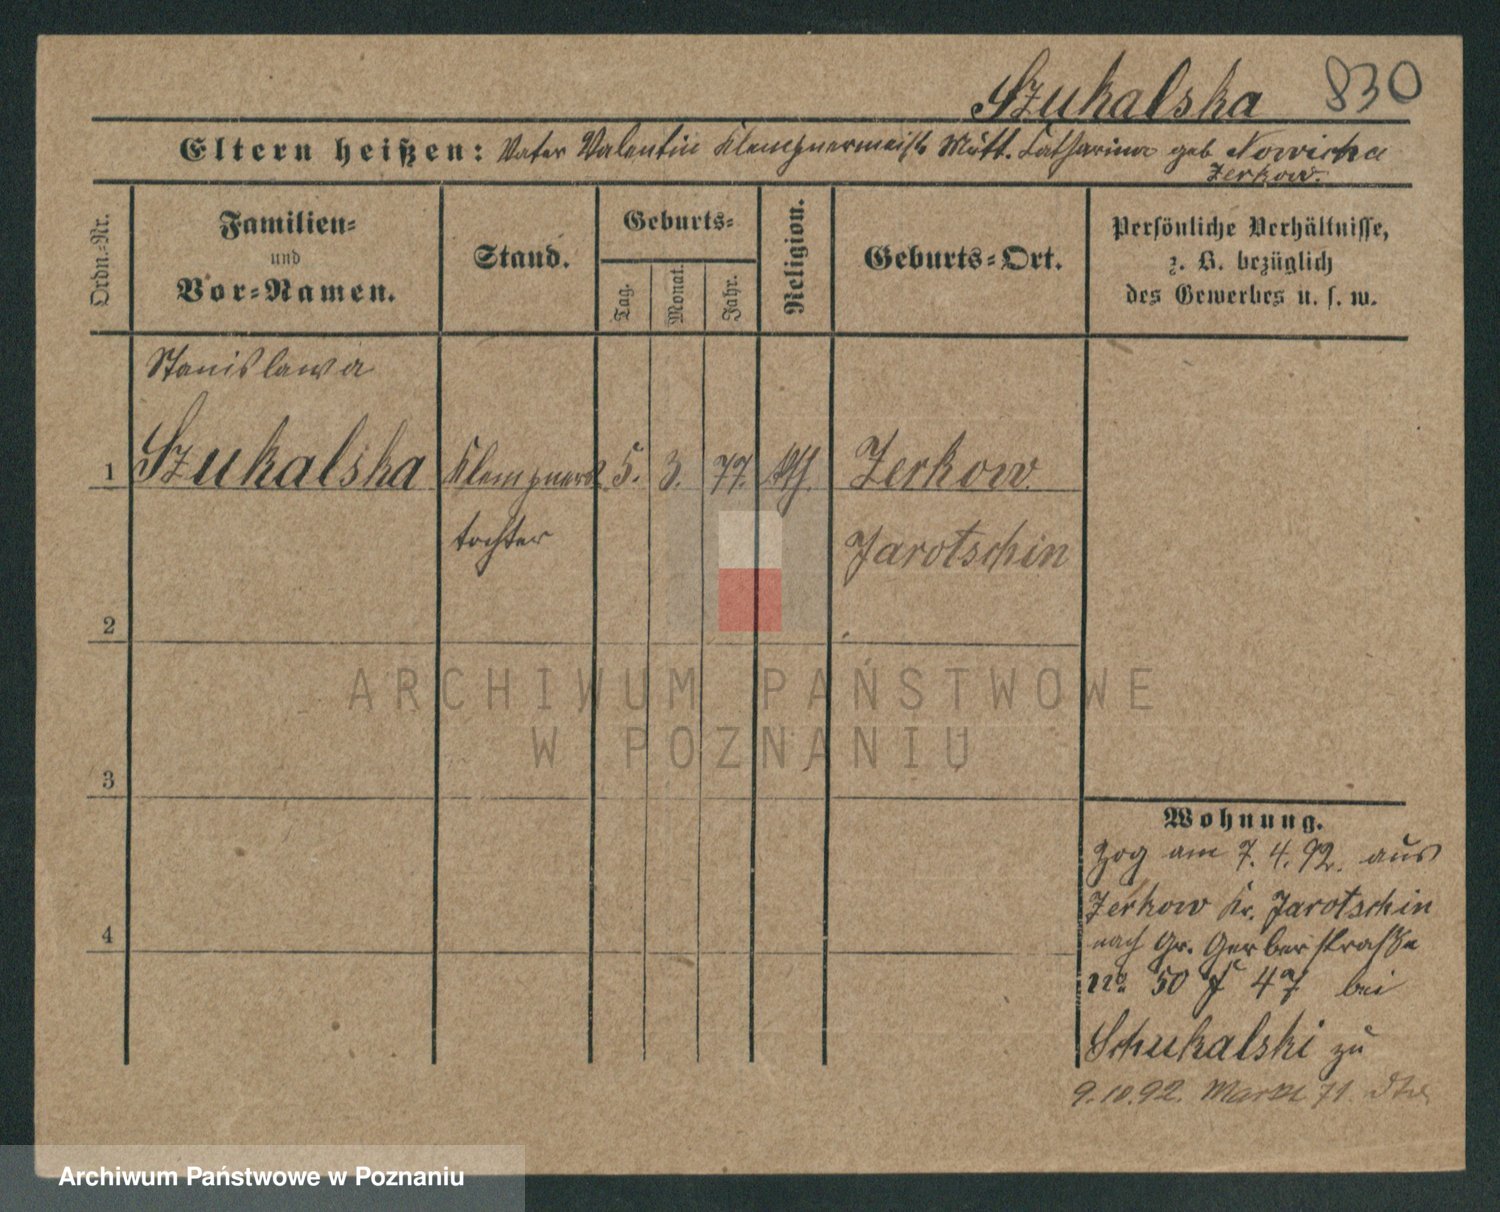 Szukalska 830
Eltern heißen: Vater Valentin Klempnermeist. Mutt. Catharina geb Nowicka
Zerkow.
Ordn.-Nr.
Familien-
und
Vor-Namen.
Stand.
Geburts-
Tag.
Monat.
Jahr.
Religion.
Geburts-Ort.
Persönliche Verhältnisse,
z. B. bezüglich
des Gewerbes u. s. w.
Stanislawa
1 Szukalska Klempners 5. 3. 77. kth. Zerkow
tochter Jarotschin
2
3
4
ARCHIWUM PAŃSTWOWE
W POZNANIU
Wohnung.
Zog am 7. 4. 92. aus
Zerkow Kr. Jarotschin
nach Gr. Gerberstraße
no. 50 47 bei
Schukalski zu
9.10.92. Markt 71
Archiwum Państwowe w Poznaniu